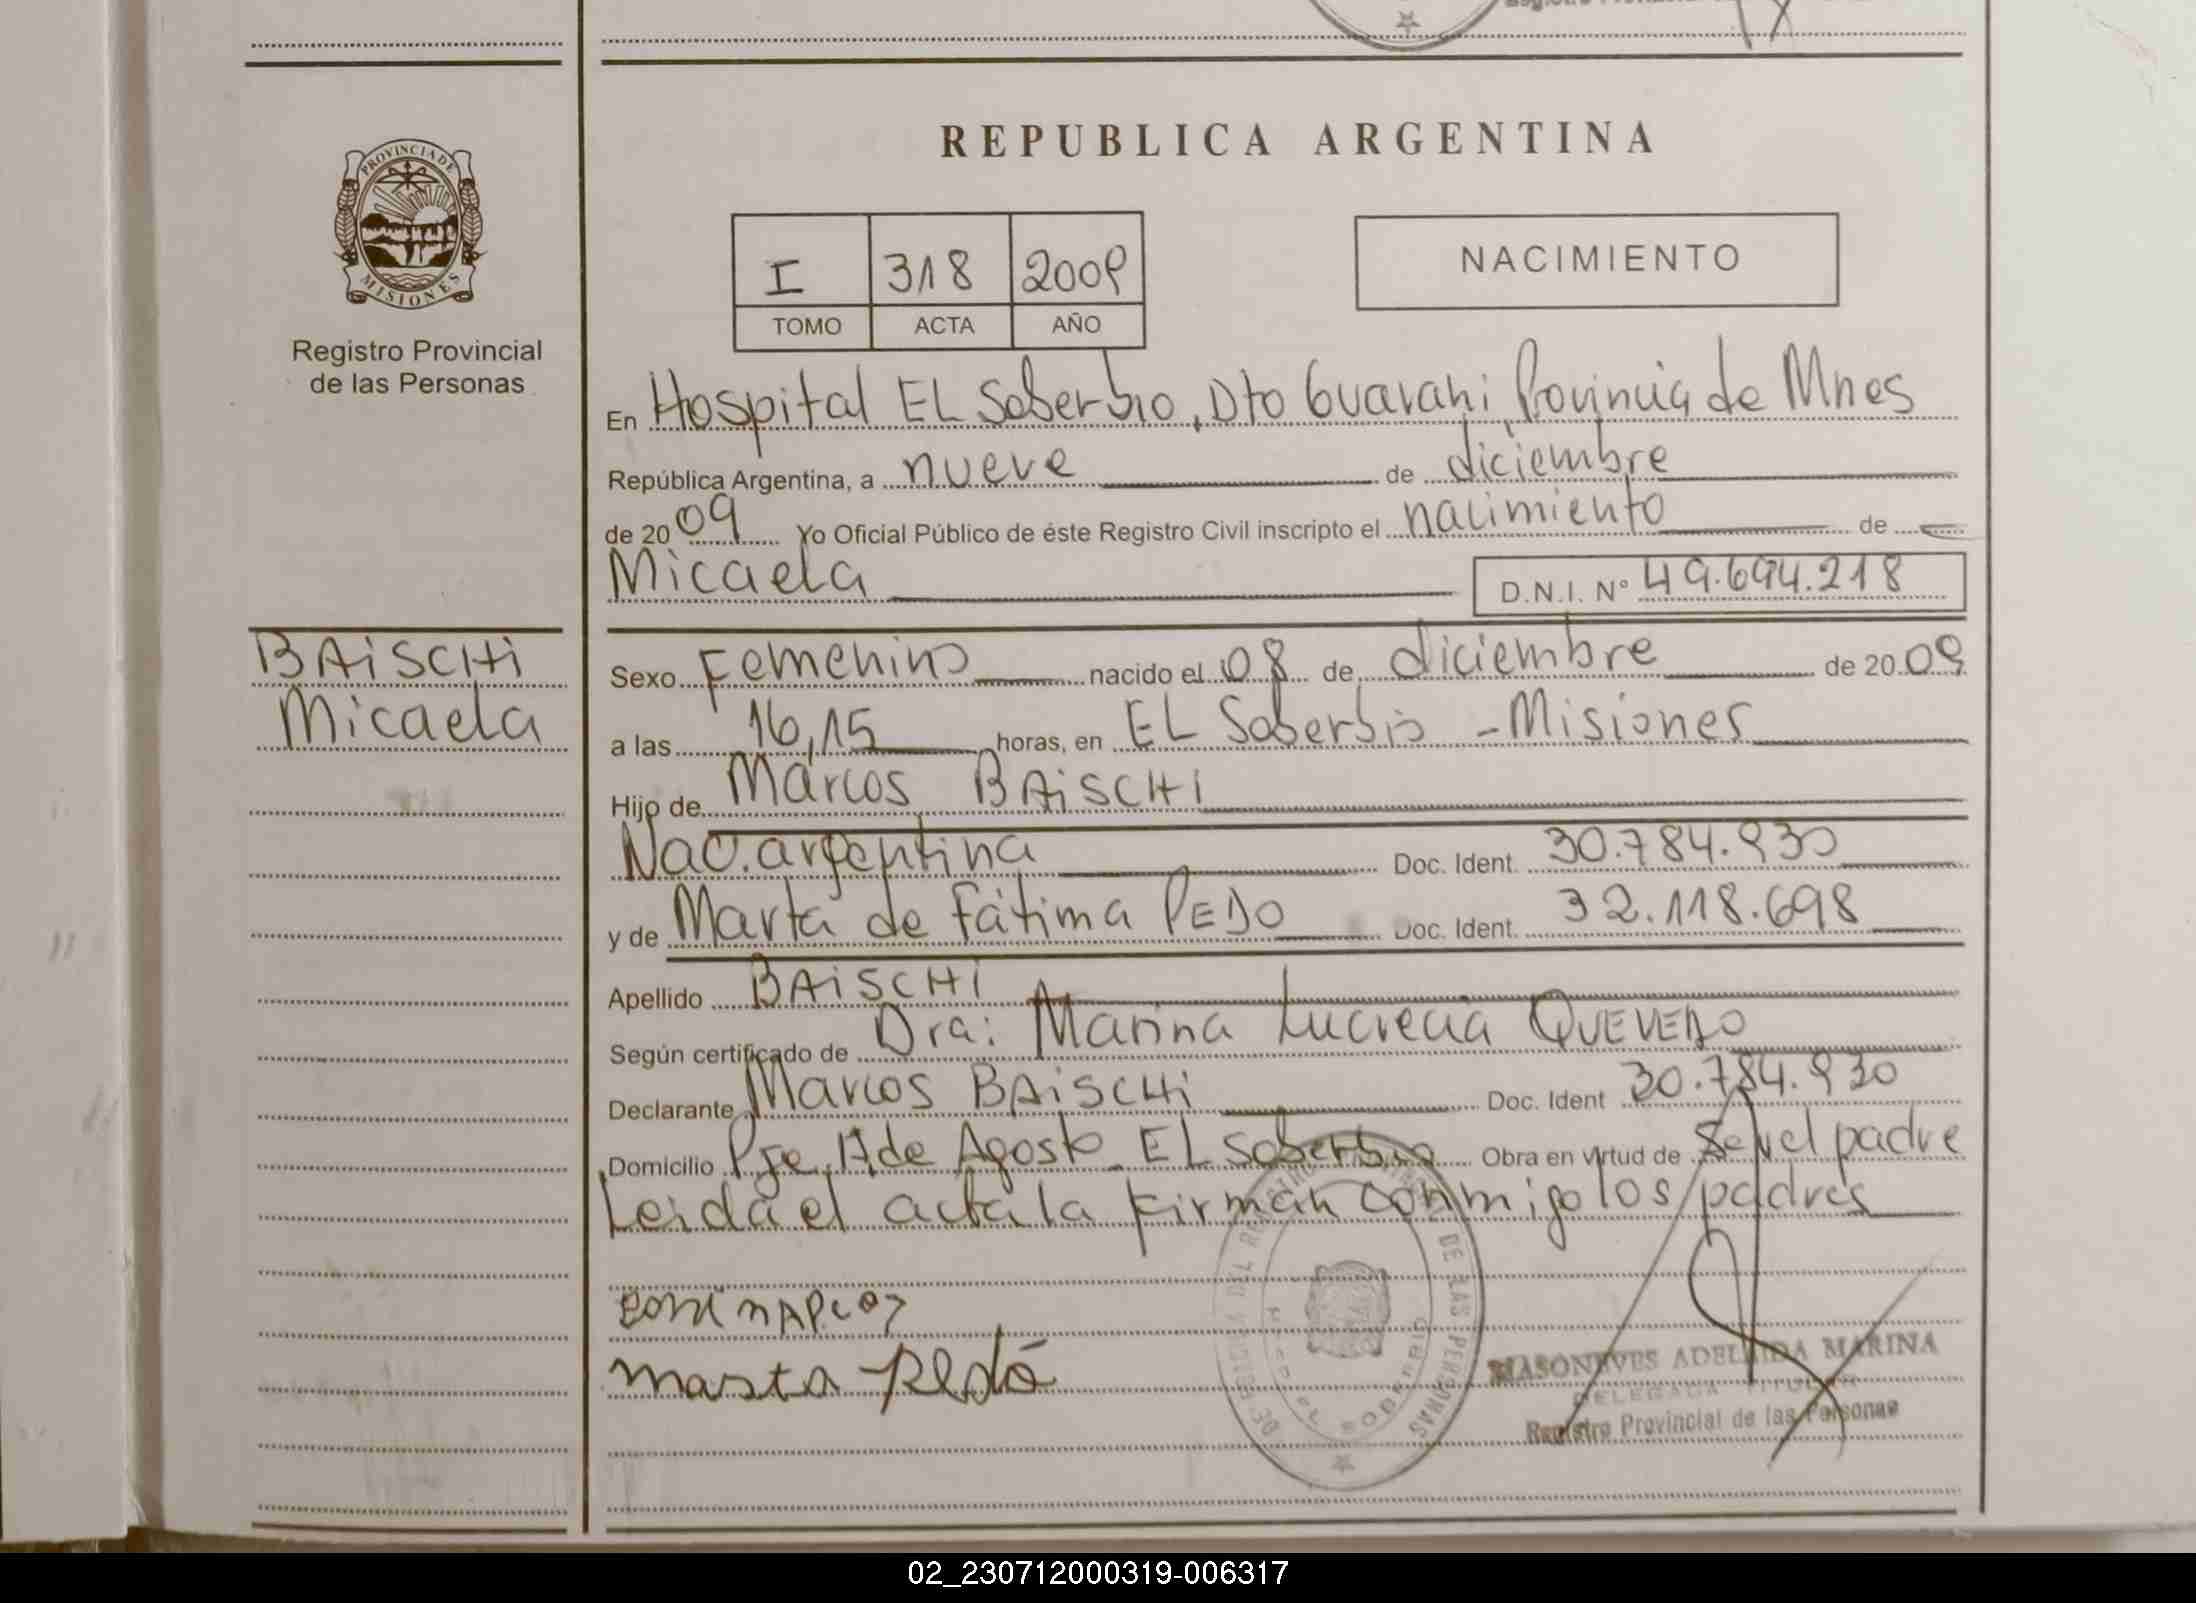 REPUBLICA ARGENTINA
PROVINCIA DE
MISIONES
Registro Provincial
de las Personas
I 318 2009
TOMO ACTA AÑO
NACIMIENTO
En Hospital EL Soberbio, Dto Guarani Provincia de Mnes
República Argentina, a nueve de diciembre
de 2009 Yo Oficial Público de éste Registro Civil inscripto el nacimiento de
Micaela D.N.I. Nº 49.694.218
BAiSCHi
Micaela
Sexo Femenino nacido el 08 de diciembre de 2009
a las 16,15 horas, en EL Soberbio - Misiones
Hijo de Marcos BAiSCHi
Nac. argentina Doc. Ident. 30.784.930
y de Marta de Fátima PEDO Doc. Ident. 32.118.698
Apellido BAiSCHi
Según certificado de Dra: Marina Lucrecia QUEVEDO
Declarante Marcos BAiSCHi Doc. Ident 30.784.930
Domicilio Pje. de Agosto EL Soberbio Obra en virtud de Ser el padre
Leida el acta la firman conmigo los padres
marta
MASONEVES ADELAIDA MARINA
DELEGADA TITULAR
Registro Provincial de las Personas
DE LAS PERSONAS
EL SOBERBIO
02_230712000319-006317